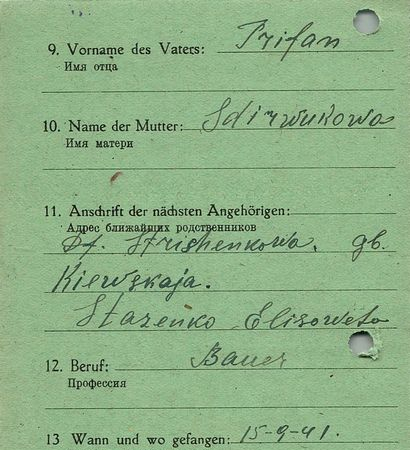 9. Vorname des Vaters: Trifan
Имя отца
10. Name der Mutter:
Имя матери
11. Anschrift der nächsten Angehörigen:
Адрес ближайших родственников
Df. Strishenkowa. gb.
Kiewskaja.
Stazenko Elisoweta
12. Beruf: Bauer
Профессия
13 Wann und wo gefangen: 15-9-41.